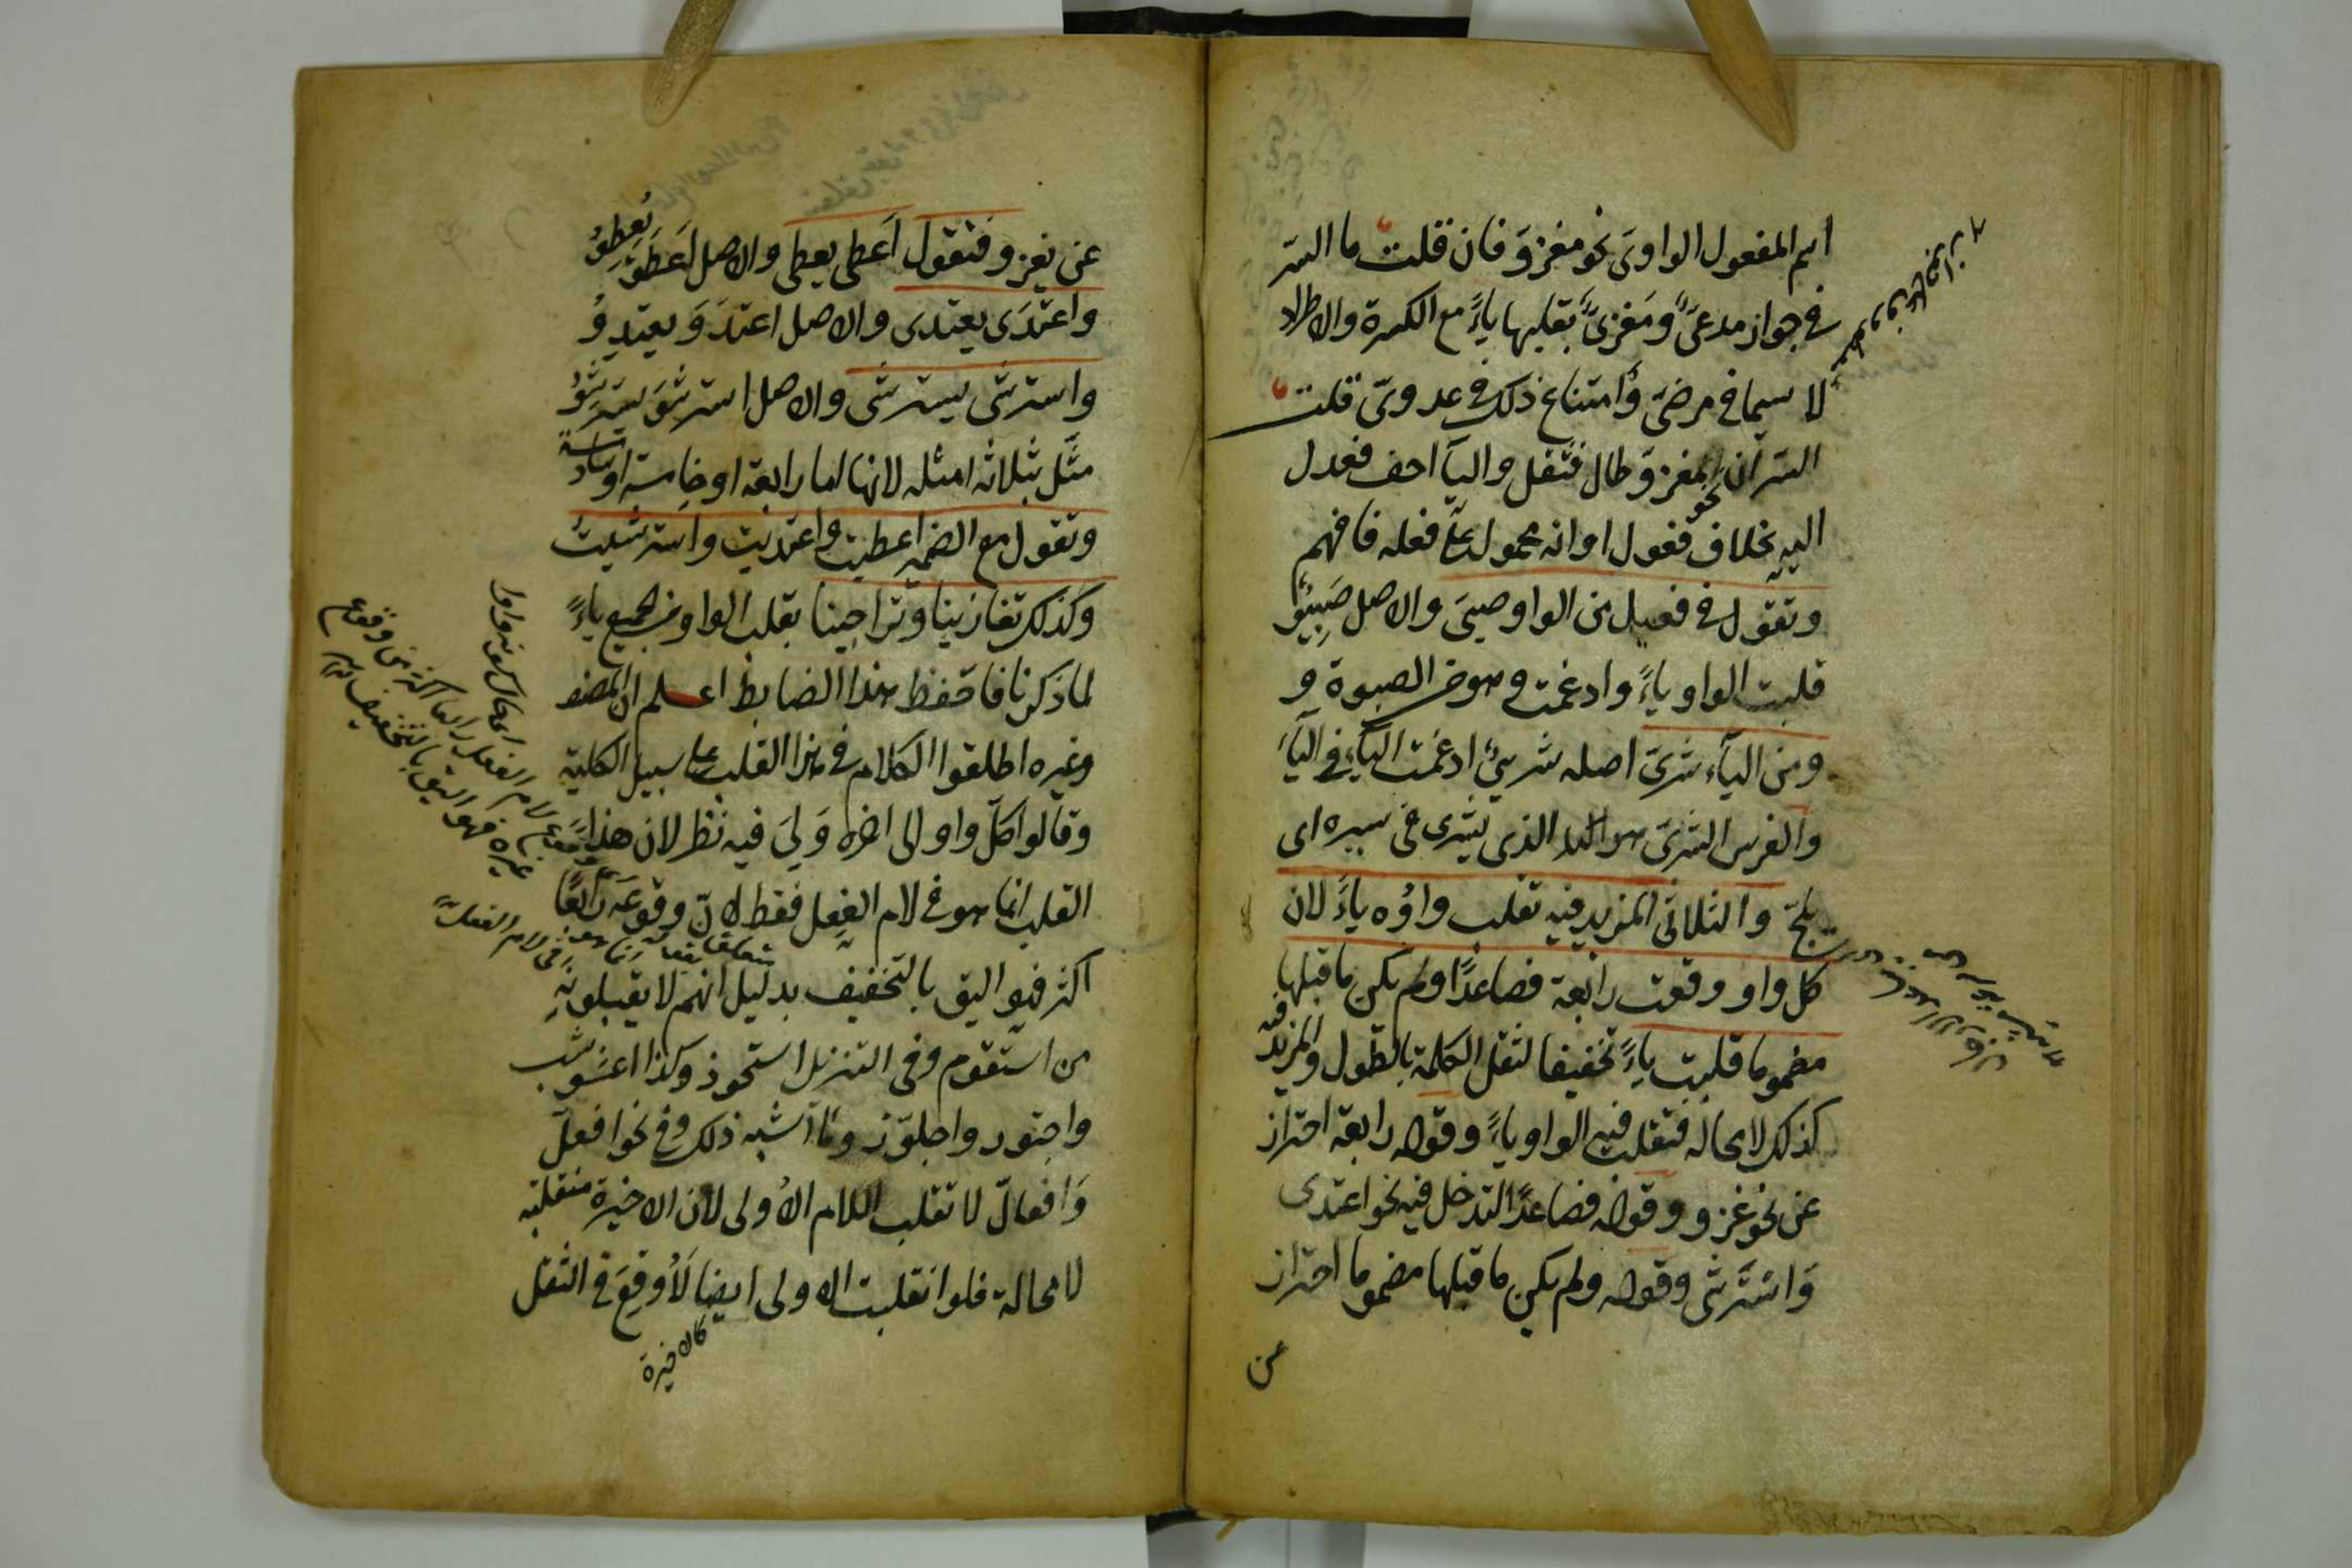 اسم المفعول الواوى نحو مغزوّ فان قلت ما السّر
فى جواز مدعىّ ومغزىّ بقلبها ياءً مع الكثرة والاطراد
لا سيما فى مرضىّ وامتناع ذلك فى عدوىّ قلت
السّر ان نحو مغزوّ طال فثقل واليآ اخف فعدل
اليه بخلاف فعول او انه محمول على فعله فافهم
وتقول فى فعيل من الواو صبىّ والاصل صَبِيْوٌ
قلبت الواو ياءً وادغمت وهو من الصبوة و
ومن اليآء شرىّ اصله شريىٌ ادغمت اليآء فى اليآء
والفرس الشرىّ هو الذى يشرى فى سيره اى
يلجّ والثلاثى المزيد فيه تقلب واوُه ياءً لان
كل واو وقعت رابعة فصاعدًا ولم يكن ما قبلها
مضموما قلبت ياءً تخفيفا لثقل الكلمة بالطول والمزيد فيه
كذلك لا محاله فتقلب فيه الواو ياءً وقوله رابعة احتراز
عن نحو غزو وقوله فصاعدًا لتدخل فيه نحو اعتدى
وَاسْتَرشى وقوله ولم يكن ما قبلها مضموما احتراز
عن
عن يغزو فتقول اَعطى يعطى والاصل اَعطَوَ يُعطِوُ
واعتَدَى يعتدى والاصل اعتدَوَ يعتدِوُ
واسترشى يسترشى والاصل استرشَوَ يسترشِوُ
مثّل بثلاثه امثله لانها اما رابعة او خامسة او سادسة
وتقول مع الضمير اعطيت واعتديت واسترشيت
وكذلك تغازينا وتراجينا بقلب الواو من الجميع ياءً
لما ذكرنا فاحفظ هذا الضابط اعلم ان المصنف
وغيره اطلقوا الكلام فى هذا القلب على سبيل الكلية
وقالوا كلّ واو الى اخره وَلِىَ فيه نظر لان هذا
القلب انما هو فى لام الفِعل فقط لانّ وقوعَه رابعًا
اكثر فهو اليق بالتخفيف بدليل انهم لا يقبلونه
من استقوم وفى التنزيل استحوذ وكذا اعشوشب
واجتور واجلوّذ وما اشبه ذلك وفى نحو افعلّ
وَافعالّ لا تقلب اللام الاُولى لان الاخيرة منقلبة
لا محالة فلو انقلبت الاولى ايضا لاُوقِعَ فى الثقل
كالاخيرة
لام الفعل رابعا اكثر من وقوع
غيره فهو اليق بالتخفيف
فى لام الفعل